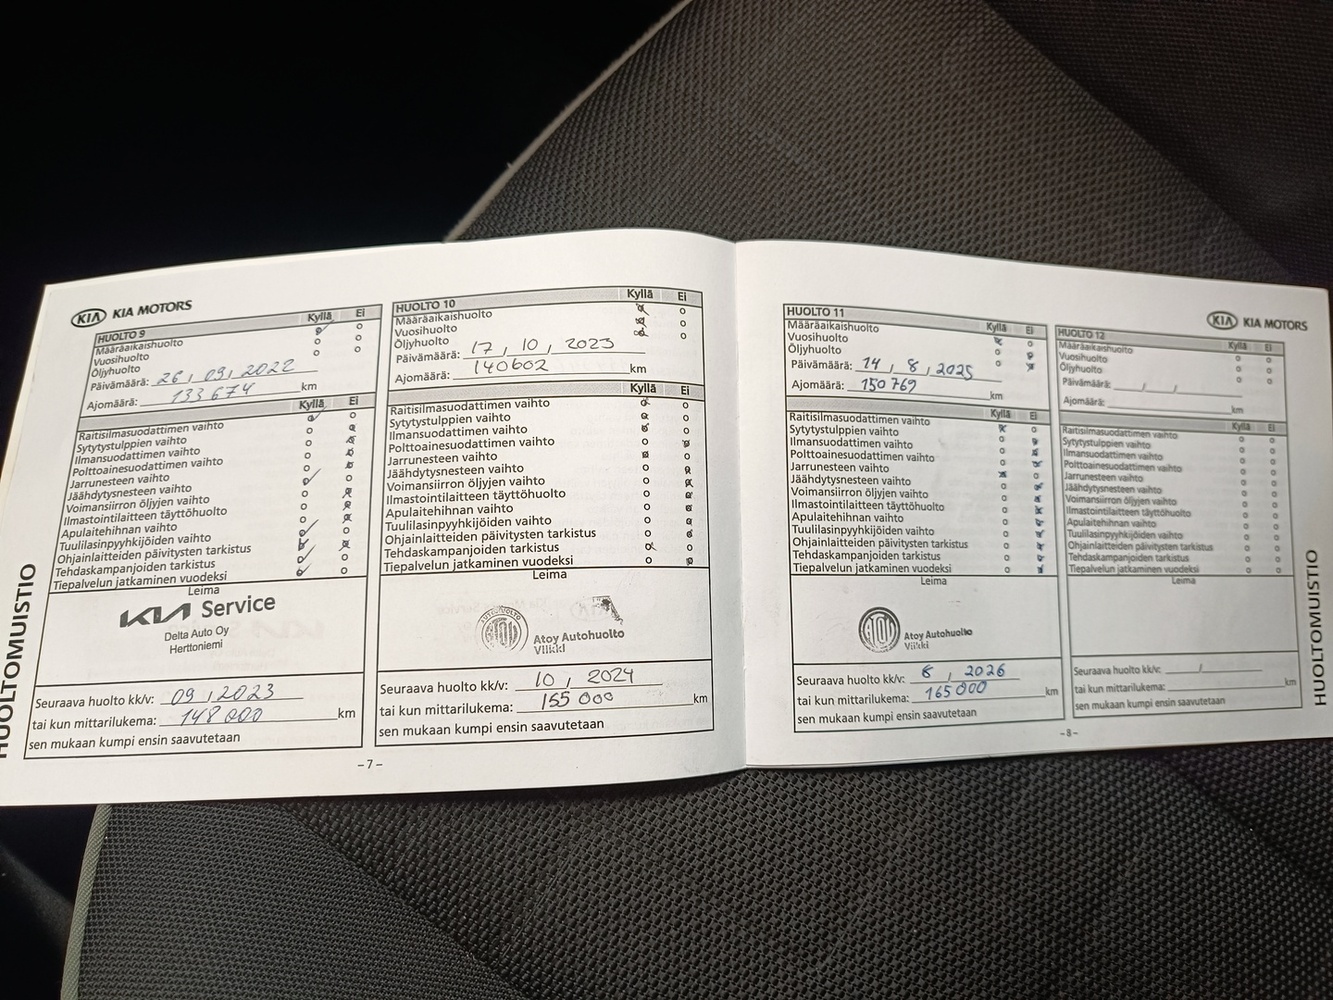 HUOLTOMUISTIO
KIA KIA MOTORS
HUOLTO 9 Kyllä Ei
Määräaikaishuolto
Vuosihuolto
Öljyhuolto
Päivämäärä: 26, 09, 2022
Ajomäärä: 133 674 km
Kyllä Ei
Raitisilmasuodattimen vaihto
Sytytystulppien vaihto
Ilmansuodattimen vaihto
Polttoainesuodattimen vaihto
Jarrunesteen vaihto
Jäähdytysnesteen vaihto
Voimansiirron öljyjen vaihto
Ilmastointilaitteen täyttöhuolto
Apulaitehihnan vaihto
Tuulilasinpyyhkijöiden vaihto
Ohjainlaitteiden päivitysten tarkistus
Tehdaskampanjoiden tarkistus
Tiepalvelun jatkaminen vuodeksi
Leima
KIA Service
Delta Auto Oy
Herttoniemi
Seuraava huolto kk/v: 09, 2023
tai kun mittarilukema: 148 000 km
sen mukaan kumpi ensin saavutetaan
HUOLTO 10 Kyllä Ei
Määräaikaishuolto
Vuosihuolto
Öljyhuolto
Päivämäärä: 17, 10, 2023
Ajomäärä: 140602 km
Kyllä Ei
Raitisilmasuodattimen vaihto
Sytytystulppien vaihto
Ilmansuodattimen vaihto
Polttoainesuodattimen vaihto
Jarrunesteen vaihto
Jäähdytysnesteen vaihto
Voimansiirron öljyjen vaihto
Ilmastointilaitteen täyttöhuolto
Apulaitehihnan vaihto
Tuulilasinpyyhkijöiden vaihto
Ohjainlaitteiden päivitysten tarkistus
Tehdaskampanjoiden tarkistus
Tiepalvelun jatkaminen vuodeksi
Leima
Atoy Autohuolto
Viikki
Seuraava huolto kk/v: 10, 2024
tai kun mittarilukema: 155 000 km
sen mukaan kumpi ensin saavutetaan
-7-
HUOLTO 11 Kyllä Ei
Määräaikaishuolto
Vuosihuolto
Öljyhuolto
Päivämäärä: 14, 8, 2025
Ajomäärä: 150 769 km
Kyllä Ei
Raitisilmasuodattimen vaihto
Sytytystulppien vaihto
Ilmansuodattimen vaihto
Polttoainesuodattimen vaihto
Jarrunesteen vaihto
Jäähdytysnesteen vaihto
Voimansiirron öljyjen vaihto
Ilmastointilaitteen täyttöhuolto
Apulaitehihnan vaihto
Tuulilasinpyyhkijöiden vaihto
Ohjainlaitteiden päivitysten tarkistus
Tehdaskampanjoiden tarkistus
Tiepalvelun jatkaminen vuodeksi
Leima
Atoy Autohuolto
Viikki
Seuraava huolto kk/v: 8, 2026
tai kun mittarilukema: 165 000 km
sen mukaan kumpi ensin saavutetaan
KIA KIA MOTORS
HUOLTO 12 Kyllä Ei
Määräaikaishuolto
Vuosihuolto
Öljyhuolto
Päivämäärä: / /
Ajomäärä: km
Kyllä Ei
Raitisilmasuodattimen vaihto
Sytytystulppien vaihto
Ilmansuodattimen vaihto
Polttoainesuodattimen vaihto
Jarrunesteen vaihto
Jäähdytysnesteen vaihto
Voimansiirron öljyjen vaihto
Ilmastointilaitteen täyttöhuolto
Apulaitehihnan vaihto
Tuulilasinpyyhkijöiden vaihto
Ohjainlaitteiden päivitysten tarkistus
Tehdaskampanjoiden tarkistus
Tiepalvelun jatkaminen vuodeksi
Leima
Seuraava huolto kk/v: /
tai kun mittarilukema: km
sen mukaan kumpi ensin saavutetaan
-8-
HUOLTOMUISTIO